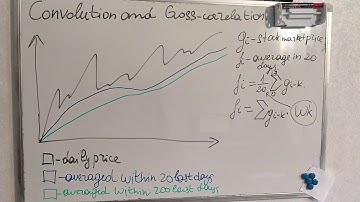 Convolution and Cross-correlation
gi - stock market price
fi - average in 20
days
fi = 1/20 Σ gi-k
fi = Σ gi-k · wk
- daily price
- averaged within 20 last days
- averaged within 200 last days